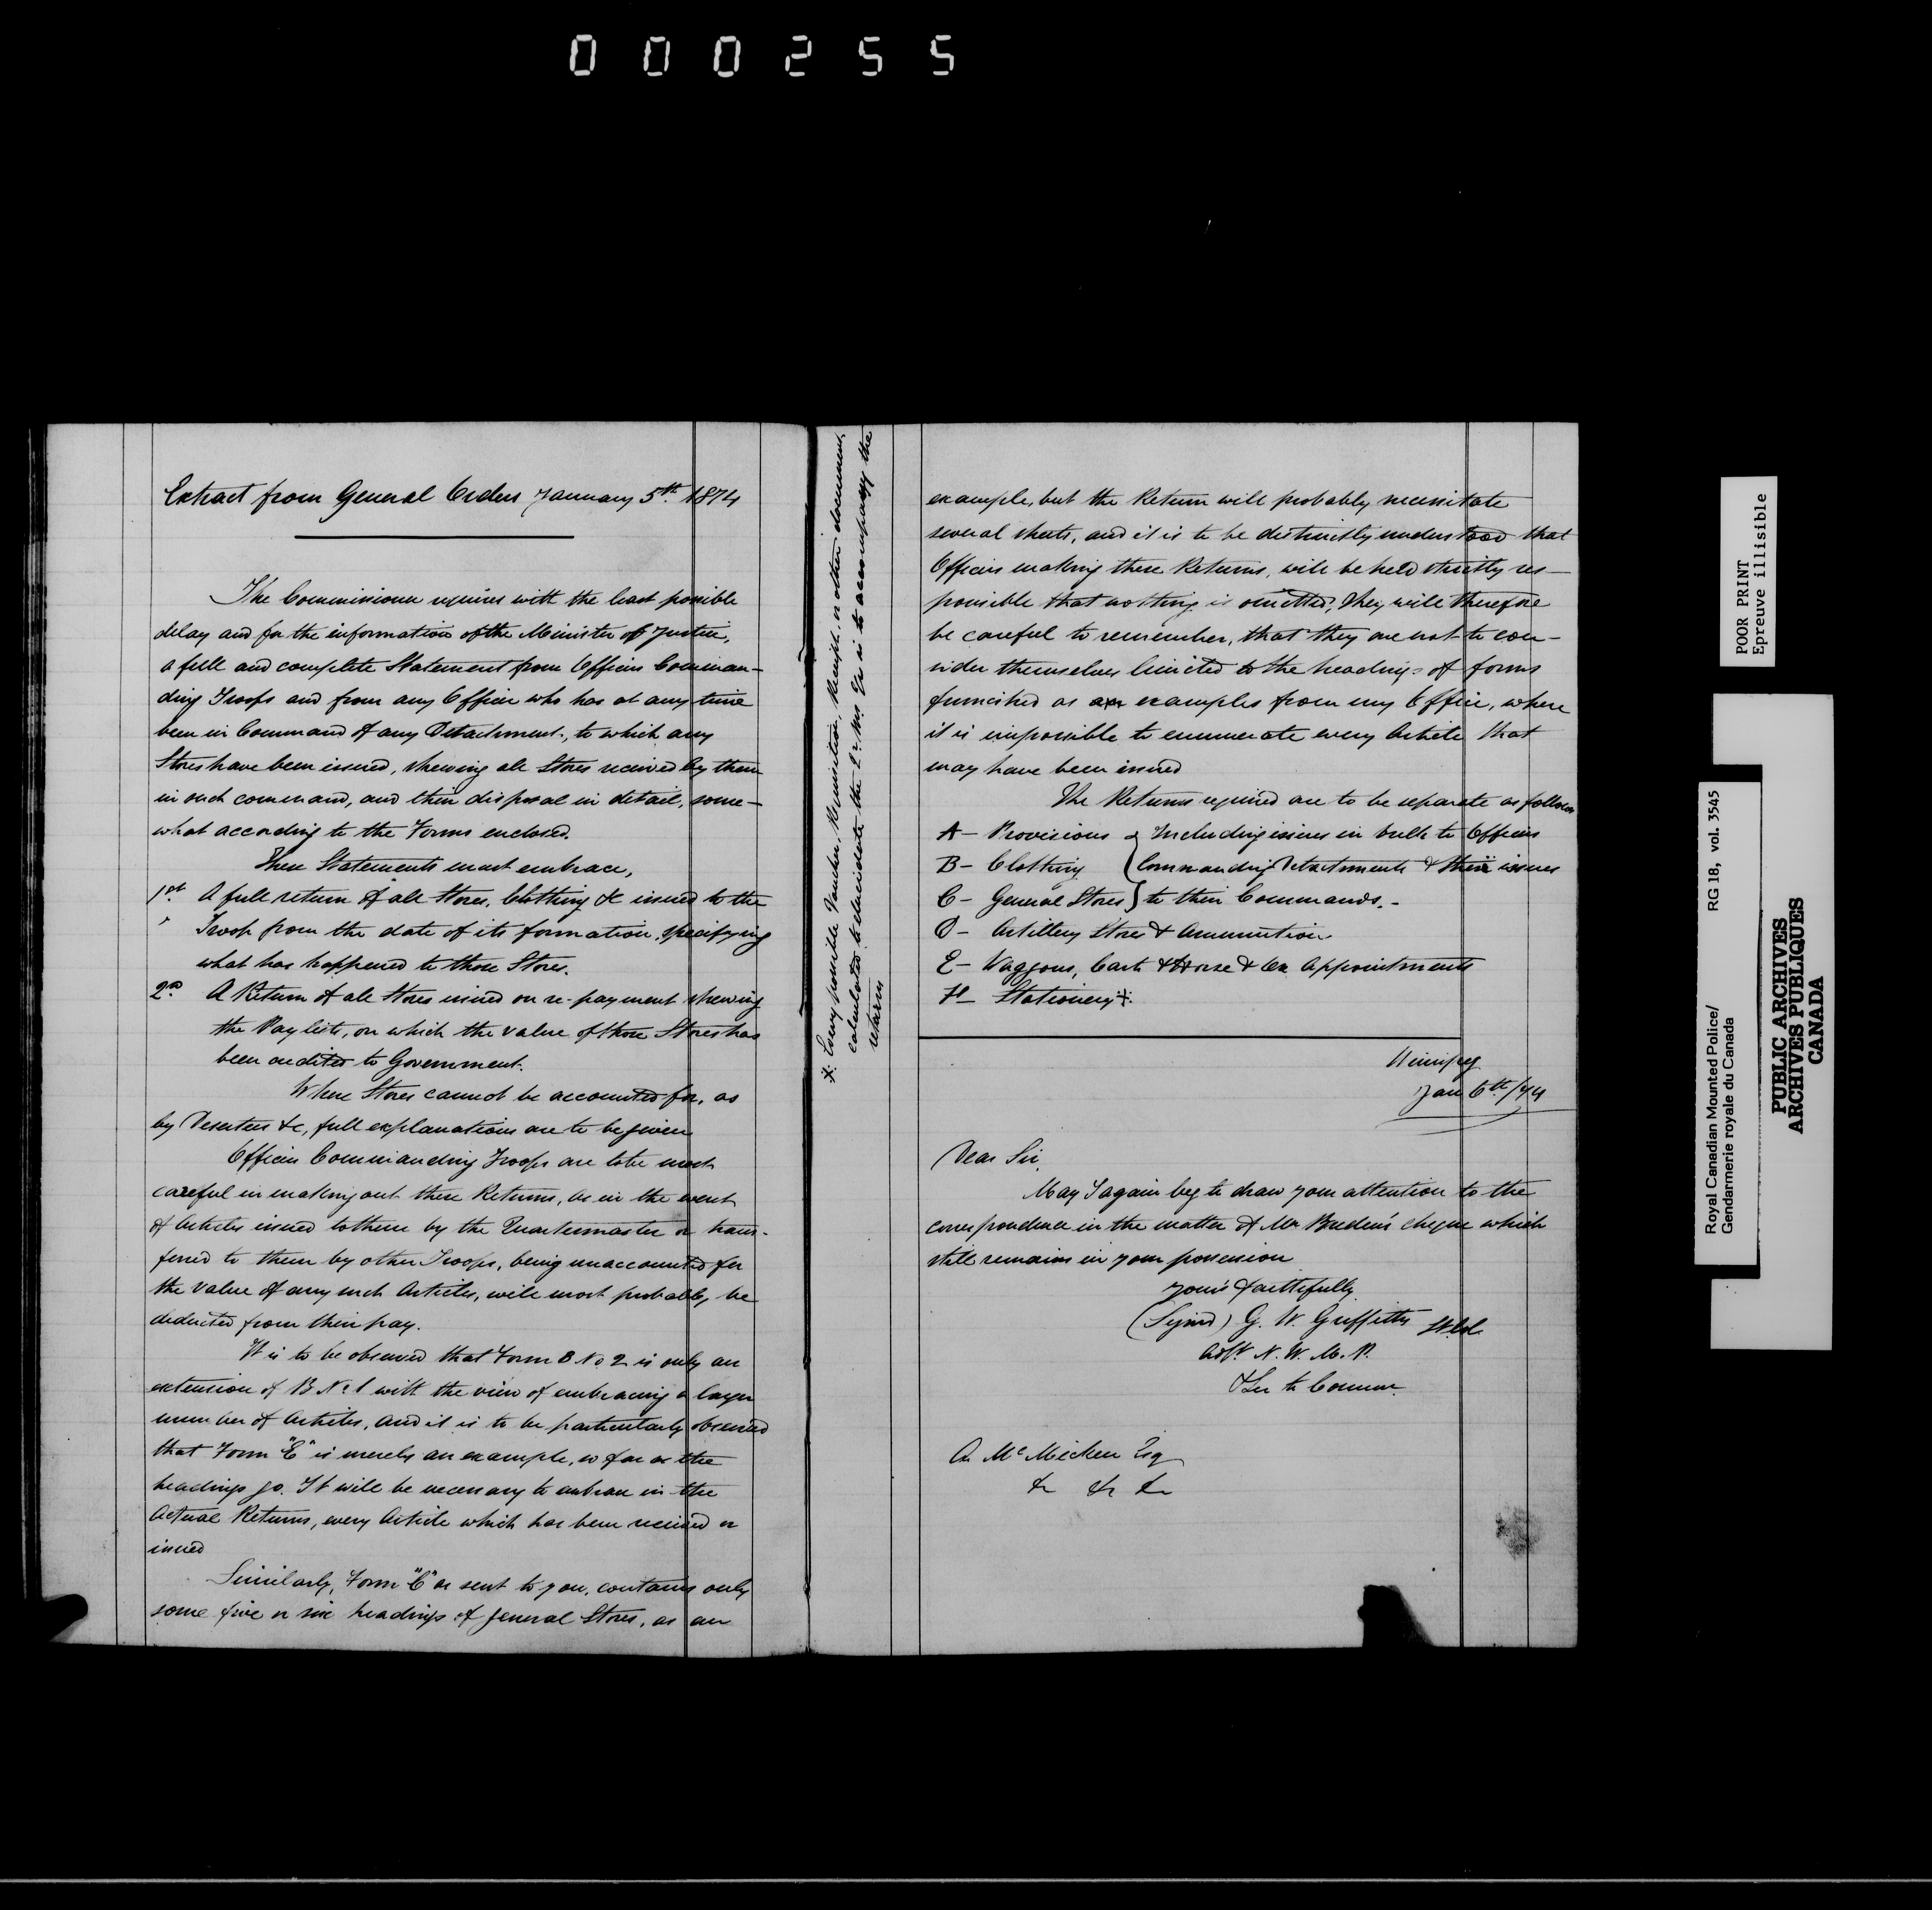 000255
Extract from General Orders January 5th 1874
The Commissioner requires with the least possible
delay and for the information of the Minister of Justice,
a full and complete Statement from Officers Comman-
ding Troops and from any Officer who has at any time
been in Command of any Detachment, to which any
Stores have been issued, shewing all Stores received by them
in such command, and their disposal in detail, some-
what according to the Forms enclosed.
These Statements must embrace,
1st. A full return of all Stores, Clothing &c issued to the
Troop from the date of its formation, specifying
what has happened to those Stores.
2nd A Return of all Stores issued on re-payment shewing
the Pay lists, on which the value of those Stores has
been credited to Government.
Where Stores cannot be accounted for, as
by Deserters &c, full explanations are to be given
Officers Commanding Troops are to be most
careful in making out these Returns, as in the event
of Articles issued to them by the Quartermaster or trans-
ferred to them by other Troops, being unaccounted for
the value of any such Articles, will most probably, be
deducted from their pay.
It is to be observed that Form B No 2 is only an
extension of B No 1 with the view of embracing a larger
number of Articles, and it is to be particularly observed
that Form "E" is merely an example, so far as the
headings go. It will be necessary to embrace in the
Actual Returns, every Article which has been received or
issued
Similarly, Form "C" as sent to you, contains only
some five or six headings of general Stores, as an
※ Every possible Voucher, Requisition, Receipt, or other document,
calculated to elucidate the Qr Mrs is to accompany the
return
example, but the Return will probably necessitate
several sheets, and it is to be distinctly understood that
Officers making these Returns, will be held strictly res-
ponsible that nothing is omitted. They will therefore
be careful to remember, that they are not to con-
sider themselves limited to the headings of forms
furnished as examples from my Office, where
it is impossible to enumerate every Article that
may have been issued
The Returns required are to be separate as follows
A - Provisions } Including issues in bulk to Officers
B - Clothing { Commanding Detachments & their issues
C - General Stores } to their Commands. -
D - Artillery Stores & Ammunition
E - Waggons, Carts & Horse & Ox Appointments
F - Stationery ※
Winnipeg
Jan 6th/74
Dear Sir,
May I again beg to draw your attention to the
correspondence in the matter of Mr Breden's cheque which
still remains in your possession
Yours faithfully
(Signed) G. W. Griffiths Lt Col.
Adjt. N. W. M. P.
& Sec to Commr.
A McMicken Esq
&c &c &c
POOR PRINT
Epreuve illisible
RG 18, vol. 3545
Royal Canadian Mounted Police/
Gendarmerie royale du Canada
PUBLIC ARCHIVES
ARCHIVES PUBLIQUES
CANADA